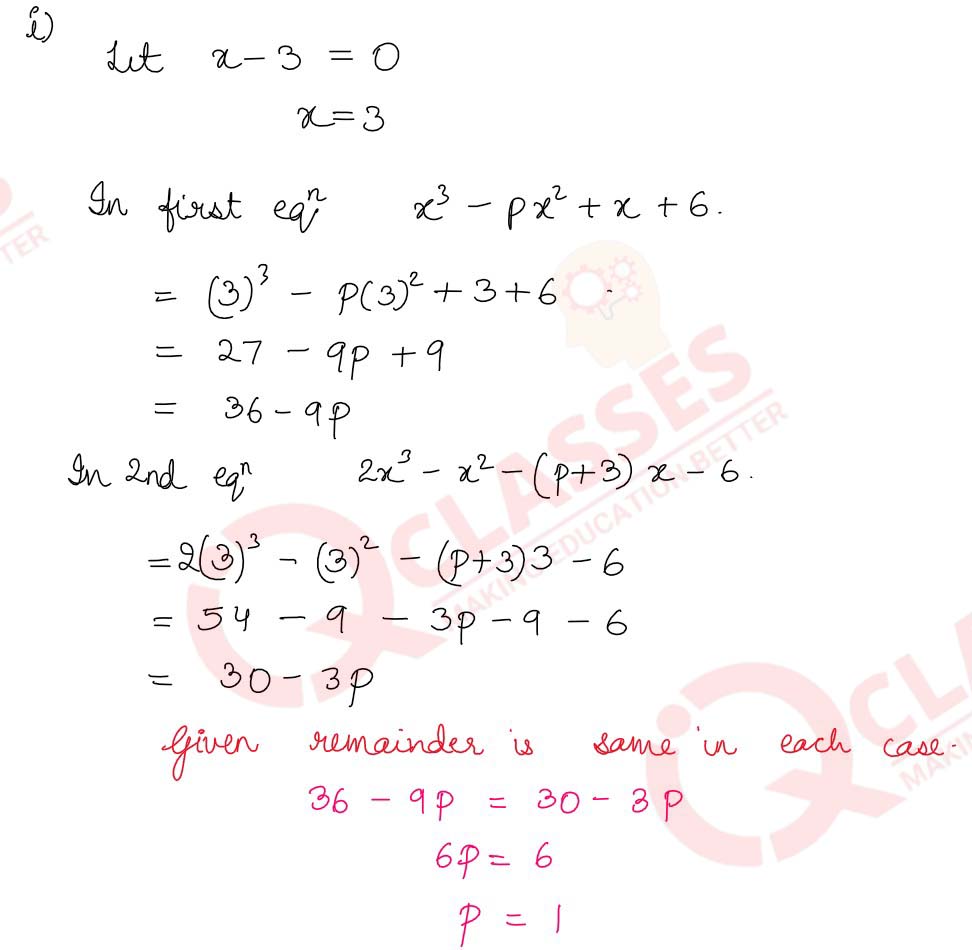 i)
Let x - 3 = 0
x = 3
In first eqⁿ x³ - px² + x + 6.
= (3)³ - p(3)² + 3 + 6
= 27 - 9p + 9
= 36 - 9p
In 2nd eqⁿ 2x³ - x² - (p+3) x - 6.
= 2(3)³ - (3)² - (p+3)3 - 6
= 54 - 9 - 3p - 9 - 6
= 30 - 3p
Given remainder is same in each case.
36 - 9p = 30 - 3p
6p = 6
p = 1
CLASSES
MAKING EDUCATION BETTER